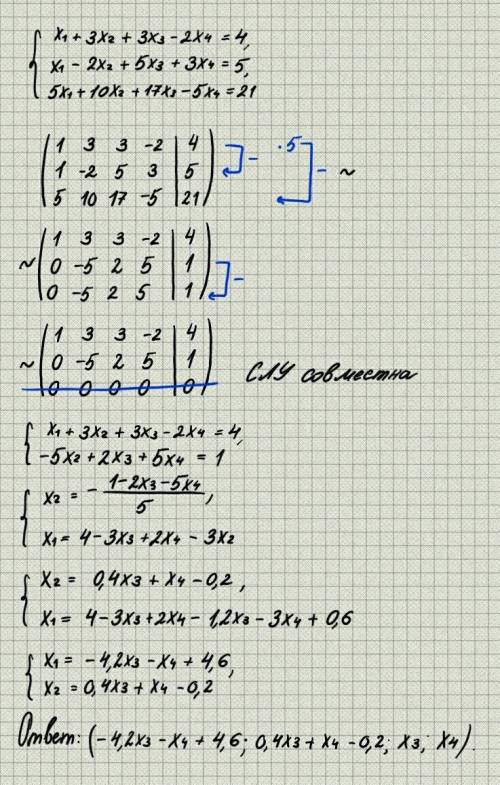 x₁ + 3x₂ + 3x₃ - 2x₄ = 4,
x₁ - 2x₂ + 5x₃ + 3x₄ = 5,
5x₁ + 10x₂ + 17x₃ - 5x₄ = 21
1 3 3 -2 | 4
1 -2 5 3 | 5 - ·5 - ~
5 10 17 -5 | 21
1 3 3 -2 | 4
~ 0 -5 2 5 | 1 -
0 -5 2 5 | 1
1 3 3 -2 | 4
~ 0 -5 2 5 | 1
0 0 0 0 | 0 СЛУ совместна
x₁ + 3x₂ + 3x₃ - 2x₄ = 4,
-5x₂ + 2x₃ + 5x₄ = 1
x₂ = - (1 - 2x₃ - 5x₄)/5,
x₁ = 4 - 3x₃ + 2x₄ - 3x₂
x₂ = 0,4x₃ + x₄ - 0,2,
x₁ = 4 - 3x₃ + 2x₄ - 1,2x₃ - 3x₄ + 0,6
x₁ = -4,2x₃ - x₄ + 4,6,
x₂ = 0,4x₃ + x₄ - 0,2
Ответ: (-4,2x₃ - x₄ + 4,6; 0,4x₃ + x₄ - 0,2; x₃; x₄).